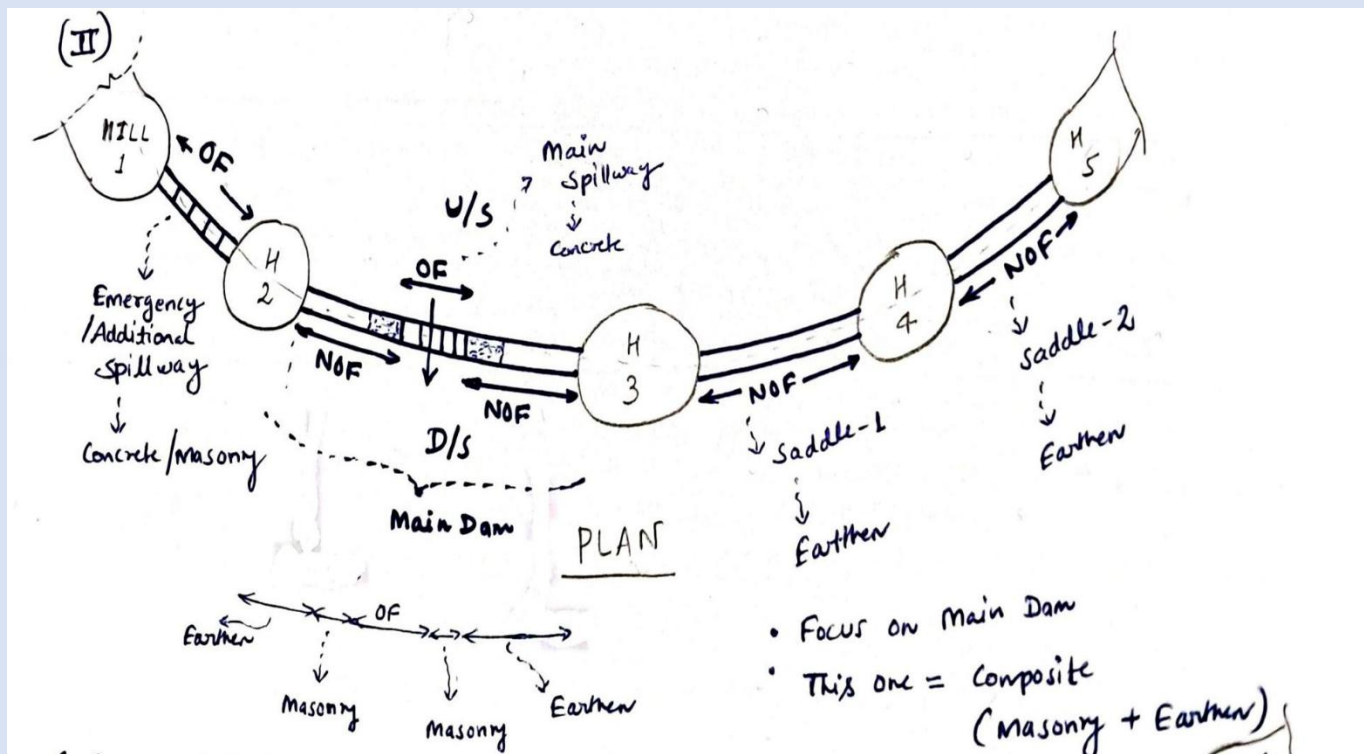 (II)
HILL
1
OF
H
2
Emergency
/Additional
Spillway
Concrete/Masonry
U/S
Main
Spillway
Concrete
OF
NOF
NOF
D/S
Main Dam
H
3
NOF
Saddle-1
Eartthen
H
4
H
5
NOF
Saddle-2
Earthen
PLAN
Earthen
OF
Masonry
Masonry
Earthen
• Focus on Main Dam
• This one = Composite
(Masonry + Earthen)